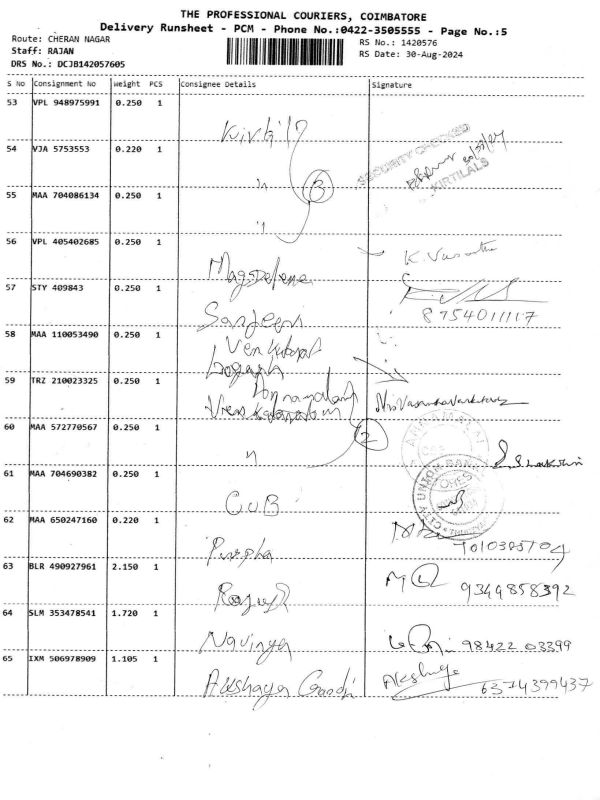 THE PROFESSIONAL COURIERS, COIMBATORE
Delivery Runsheet - PCM - Phone No.:0422-3505555 - Page No.:5
Route: CHERAN NAGAR
RS No.: 1420576
Staff: RAJAN
RS Date: 30-Aug-2024
DRS No.: DCJB142057605
S No Consignment No Weight PCS Consignee Details Signature
53 VPL 948975991 0.250 1
54 VJA 5753553 0.220 1
SECURITY CHECKED
KIRTILALS
3
55 MAA 704086134 0.250 1
56 VPL 405402685 0.250 1 Magdelene K. Vasantha
57 STY 409843 0.250 1 Sanjeev 8754011117
58 MAA 110053490 0.250 1 Venkatapat
59 TRZ 210023325 0.250 1
60 MAA 572770567 0.250 1 2
61 MAA 704690382 0.250 1 CUB
CITY UNION BANK
62 MAA 650247160 0.220 1 Puspha
63 BLR 490927961 2.150 1 9344858392
64 SLM 353478541 1.720 1 Navinya 98422 03399
65 IXM 506978909 1.105 1 Akshaya Gandhi Akshaya 6374399437